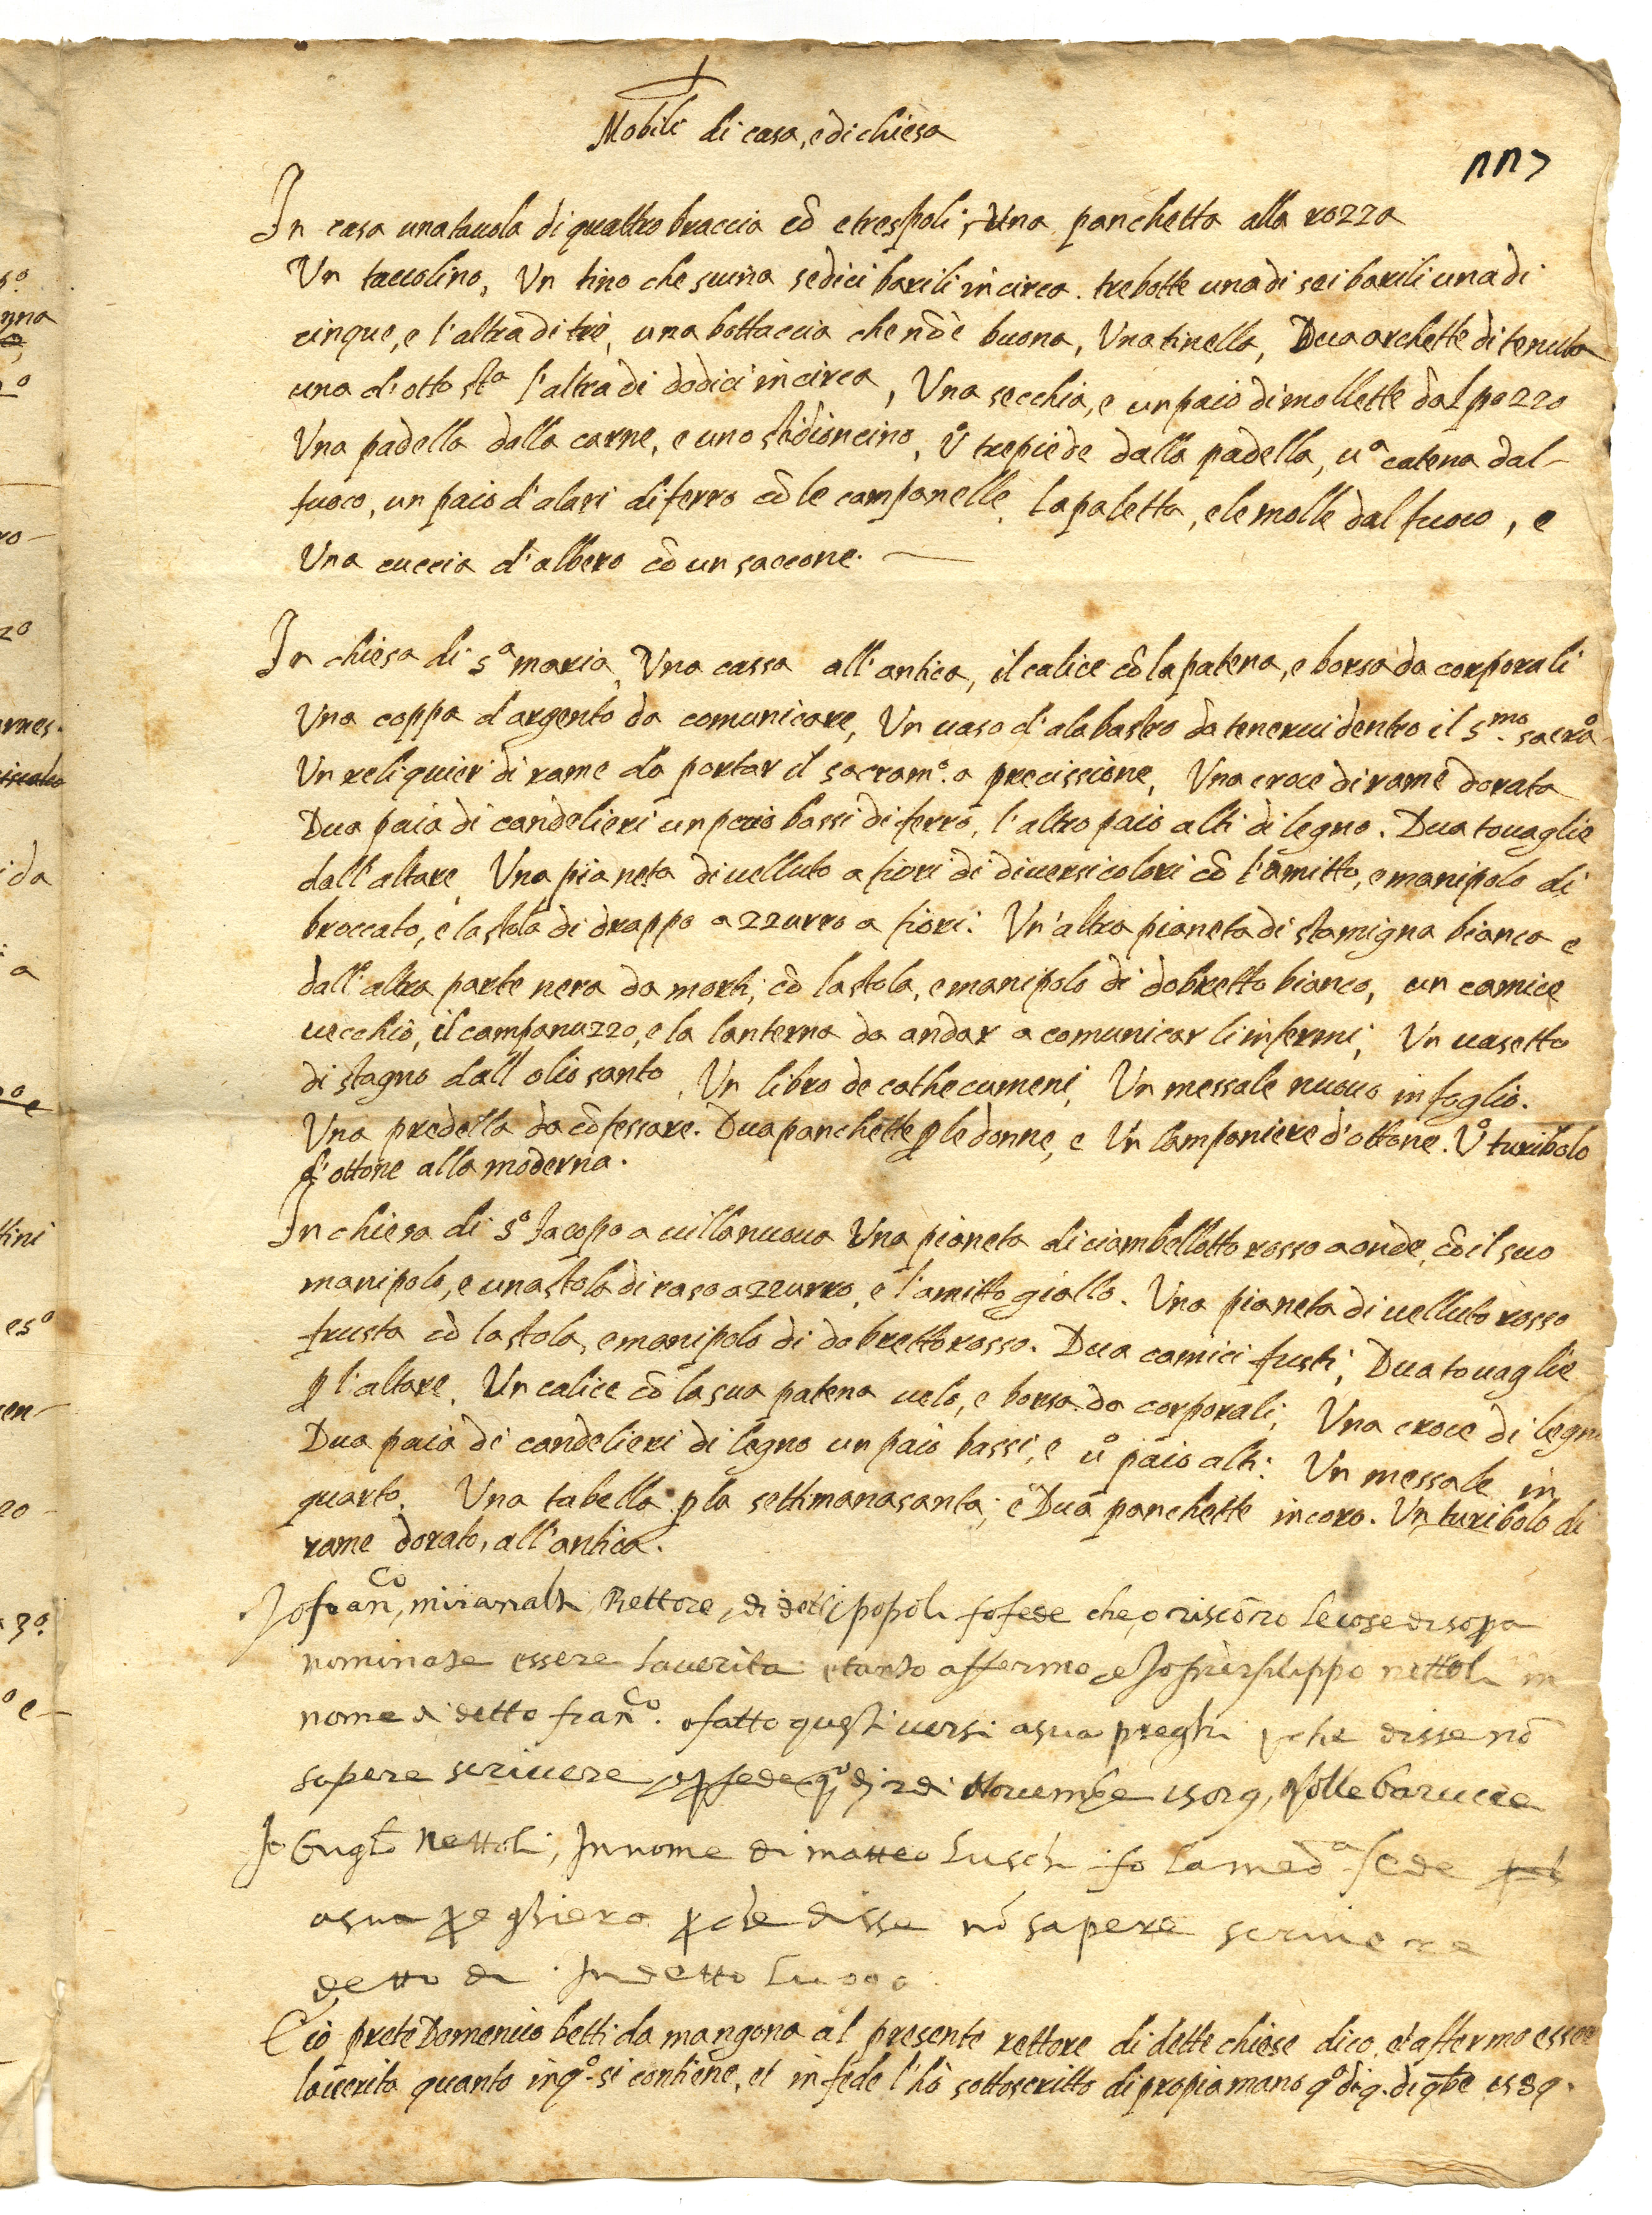 Mobili di casa, e di chiesa
nn7
In casa una tauola di quattro braccia cõ e trespoli; Una panchetta alla rozza
Un tauolino, Un tino che suina sedici barili in circa. tre botte una di sei barili una di
cinque, e l'altra di tre, una bottaccia che nõ è buona, Una tinella, Dua archette di tenuta
una d'otto stª l'altra di dodici in circa, Una secchia, e un paio di mollette dal pozzo
Una padella dalla carne, e uno stidioncino, Uº trepiede dalla padella, uª catena dal
fuoco, un paio d'alari di ferro cõ le campanelle, la paletta, e le molle dal fuoco, e
Una cuccia d'albero cõ un saccone.
In chiesa di Sª maria, Una cassa all'antica, il calice cõ la patena, e borsa da corporali
Una coppa d'argento da comunicare, Un uaso d'alabastro da tenerui dentro il S.mo sacrº
Un reliquieri di rame da portar il sacramº. a precissione, Una croce di rame dorata
Dua paia di candelieri un paio bassi di ferro, l'altro paio alti di legno. Dua touaglie
dall'altare, Una pianeta di uelluto a fiori di diuersi colori cõ l'amitto, e manipolo di
broccato, e la stola di drappo azzurro a fiori: Un'altra pianeta di stamigna bianca e
dall'altra parte nera da morti, cõ la stola, e manipolo di dobretto bianco, un camice
uecchio, il campanuzzo, e la lanterna da andar a comunicar l'infermi, Un uasetto
di stagno dall olio santo, Un libro de cathecumeni, Un messale nuouo in foglio.
Una predella da cõfessare. Dua panchette p le donne, e Un lampaniere d'ottone. Uº turibolo
d'ottone alla moderna.
In chiesa di Sº Jacopo a uillanuoua Una pianeta di ciambellotto rosso a onde, cõ il suo
manipolo, e una stola di raso azzurro, e l'amitto giallo. Una pianeta di uelluto rosso
frusta cõ la stola, e manipolo di dobretto rosso. Dua camici frusti, Dua touaglie
p l'altare, Un calice cõ la sua patena uelo, e borsa da corporali, Una croce di legno
Dua paia di candelieri di legno un paio bassi, e uº paio alti: Un messale in
quarto, Una tabella p la settimana santa; e Dua panchette in coro. Un turibolo di
rame dorato, all'antica.
Jo franco, Rettore, di detti popoli fo fede che le cose di sopa
nominate essere la uerita e tanto affermo e Jo filippo nettoli in
nome di detto franco. o fatto questi uersi a sua preghi pche disse nõ
sapere scriuere Nouembe
Jo Nettoli, In nome di matteo Luschi fo la medª fede
a sua peghiera pche disse nõ sapere scriuere
detto di In detto Luogo
E io prete Domenico betti da mangona al presente rettore di dette chiese dico, et affermo esser
la uerita quanto in qº. si contiene, et in fede l'hò sottoscritto di propia mano qº di 9. di 9bre 1589.